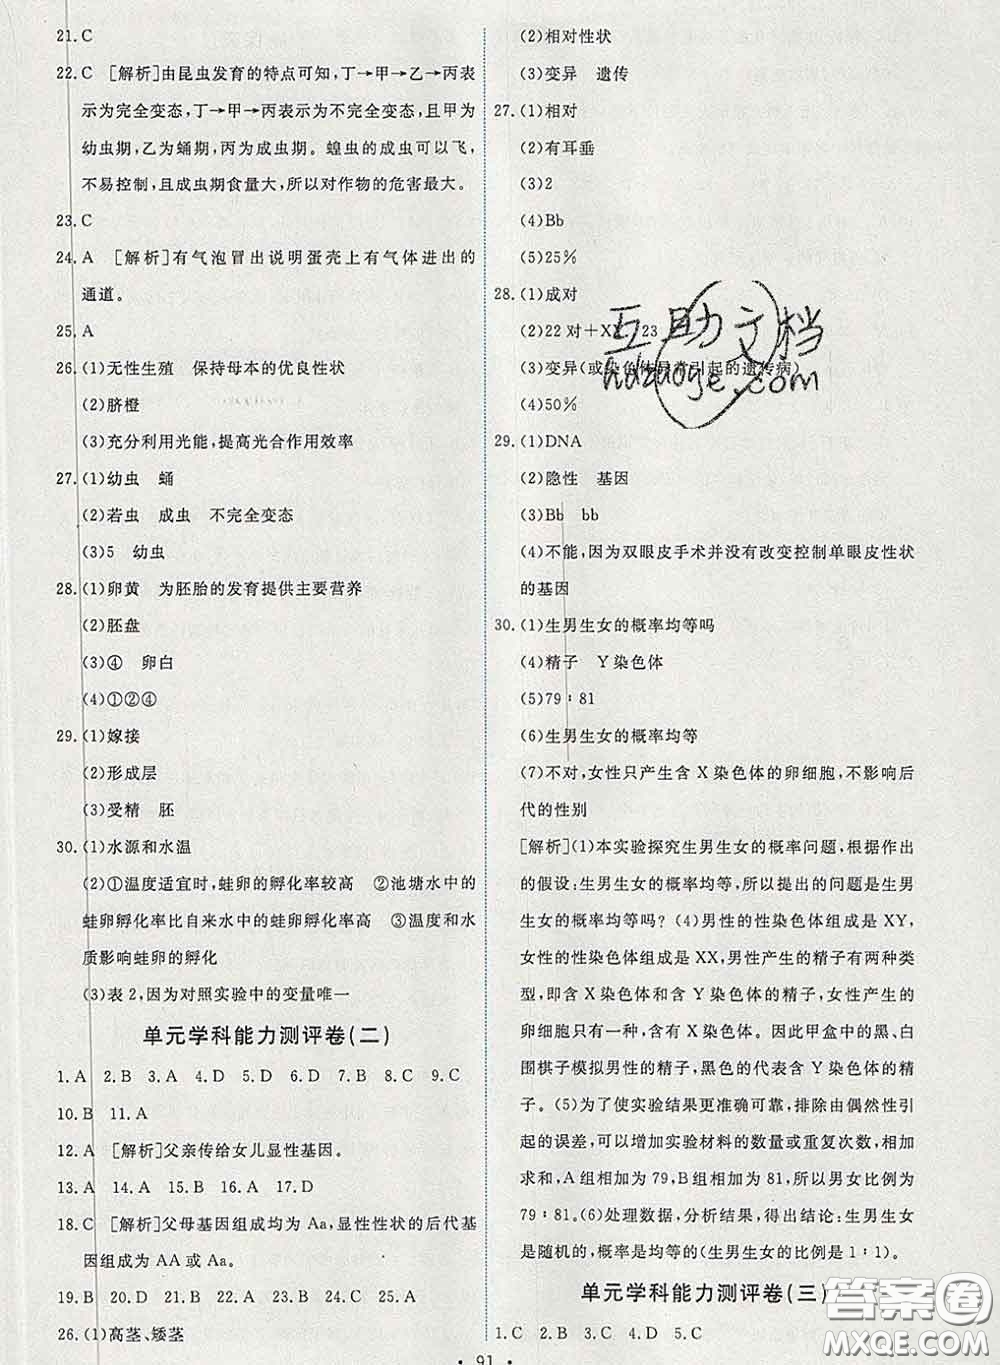 21. C
22. C [解析]由昆虫发育的特点可知,丁→甲→乙→丙表
示为完全变态,丁→甲→丙表示为不完全变态,且甲为
幼虫期,乙为蛹期,丙为成虫期。蝗虫的成虫可以飞,
不易控制,且成虫期食量大,所以对作物的危害最大。
23. C
24. A [解析]有气泡冒出说明蛋壳上有气体进出的
通道。
25. A
26. (1)无性生殖 保持母本的优良性状
(2)脐橙
(3)充分利用光能,提高光合作用效率
27. (1)幼虫 蛹
(2)若虫 成虫 不完全变态
(3)5 幼虫
28. (1)卵黄 为胚胎的发育提供主要营养
(2)胚盘
(3)④ 卵白
(4)①②④
29. (1)嫁接
(2)形成层
(3)受精 胚
30. (1)水源和水温
(2)①温度适宜时,蛙卵的孵化率较高 ②池塘水中的
蛙卵孵化率比自来水中的蛙卵孵化率高 ③温度和水
质影响蛙卵的孵化
(3)表2,因为对照实验中的变量唯一
单元学科能力测评卷(二)
1. A 2. B 3. A 4. D 5. D 6. D 7. B 8. C 9. C
10. B 11. A
12. A [解析]父亲传给女儿显性基因。
13. A 14. A 15. A 16. A 17. D
18. C [解析]父母基因组成均为 Aa,显性性状的后代基
因组成为 AA 或 Aa。
19. B 20. D 21. A 22. D 23. B 24. A 25. A
26. (1)高茎、矮茎
(2)相对性状
(3)变异 遗传
27. (1)相对
(2)有耳垂
(3)2
(4)Bb
(5)25%
28. (1)成对
(2)22 对+X 23
(3)变异(或染色体异常引起的遗传病)
(4)50%
29. (1)DNA
(2)隐性 基因
(3)Bb bb
(4)不能,因为双眼皮手术并没有改变控制单眼皮性状
的基因
30. (1)生男生女的概率均等吗
(4)精子 Y染色体
(5)79∶81
(6)生男生女的概率均等
(7)不对,女性只产生含 X 染色体的卵细胞,不影响后
代的性别
[解析](1)本实验探究生男生女的概率问题,根据作出
的假设:生男生女的概率均等,所以提出的问题是生男
生女的概率均等吗? (4)男性的性染色体组成是 XY,
女性的性染色体组成是 XX,男性产生的精子有两种类
型,即含 X 染色体和含 Y 染色体的精子,女性产生的
卵细胞只有一种,含 X 染色体。因此甲盒中的黑、白
围棋子模拟男性的精子,黑色的代表含 Y 染色体的精
子。(5)为了使实验结果更准确可靠,排除由偶然性引
起的误差,可以增加实验材料的数量或重复次数,相加
求和,A 组相加为 79,B 组相加为 81,所以男女比例为
79∶81。(6)处理数据,分析结果,得出结论:生男生女
是随机的,概率是均等的(生男生女的比例是 1∶1)。
单元学科能力测评卷(三)
1. C 2. B 3. C 4. D 5. C
• 91 •
互助文档
hdzuoye.com
答案圈
MXQE.COM